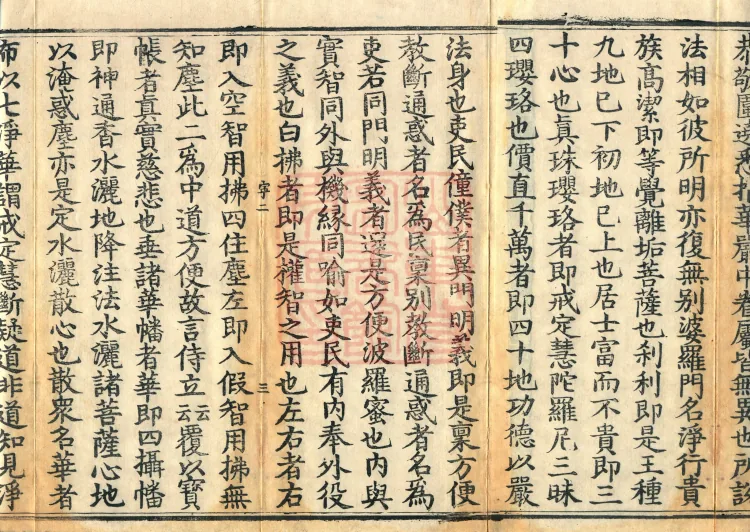 恭敬圍遶悉指華嚴中眷屬皆無異也所說
法相如彼所明亦復無別婆羅門名淨行貴
族高潔即等覺離垢菩薩也刹利即是王種
九地已下初地已上也居士富而不貴即三
十心也真珠瓔珞者即戒定慧陀羅尼三昧
四瓔珞也價直千萬者即四十地功德以嚴
法身也吏民僮僕者異門明義即是稟方便
教斷通惑者名為民稟別教斷通惑者名為
吏若同門明義者還是方便波羅蜜也內與
實智同外與機緣同喻如吏民有內奉外役
之義也白拂者即是權智之用也左右者右
字二
三
即入空智用拂四住塵左即入假智用拂無
知塵此二為中道方便故言侍立云云覆以寶
帳者真實慈悲也垂諸華幡者華即四攝幡
即神通香水灑地降注法水灑諸菩薩心地
以淹惑塵亦是定水灑散心也散衆名華者
布以七淨華謂戒定慧斷疑道非道知見淨